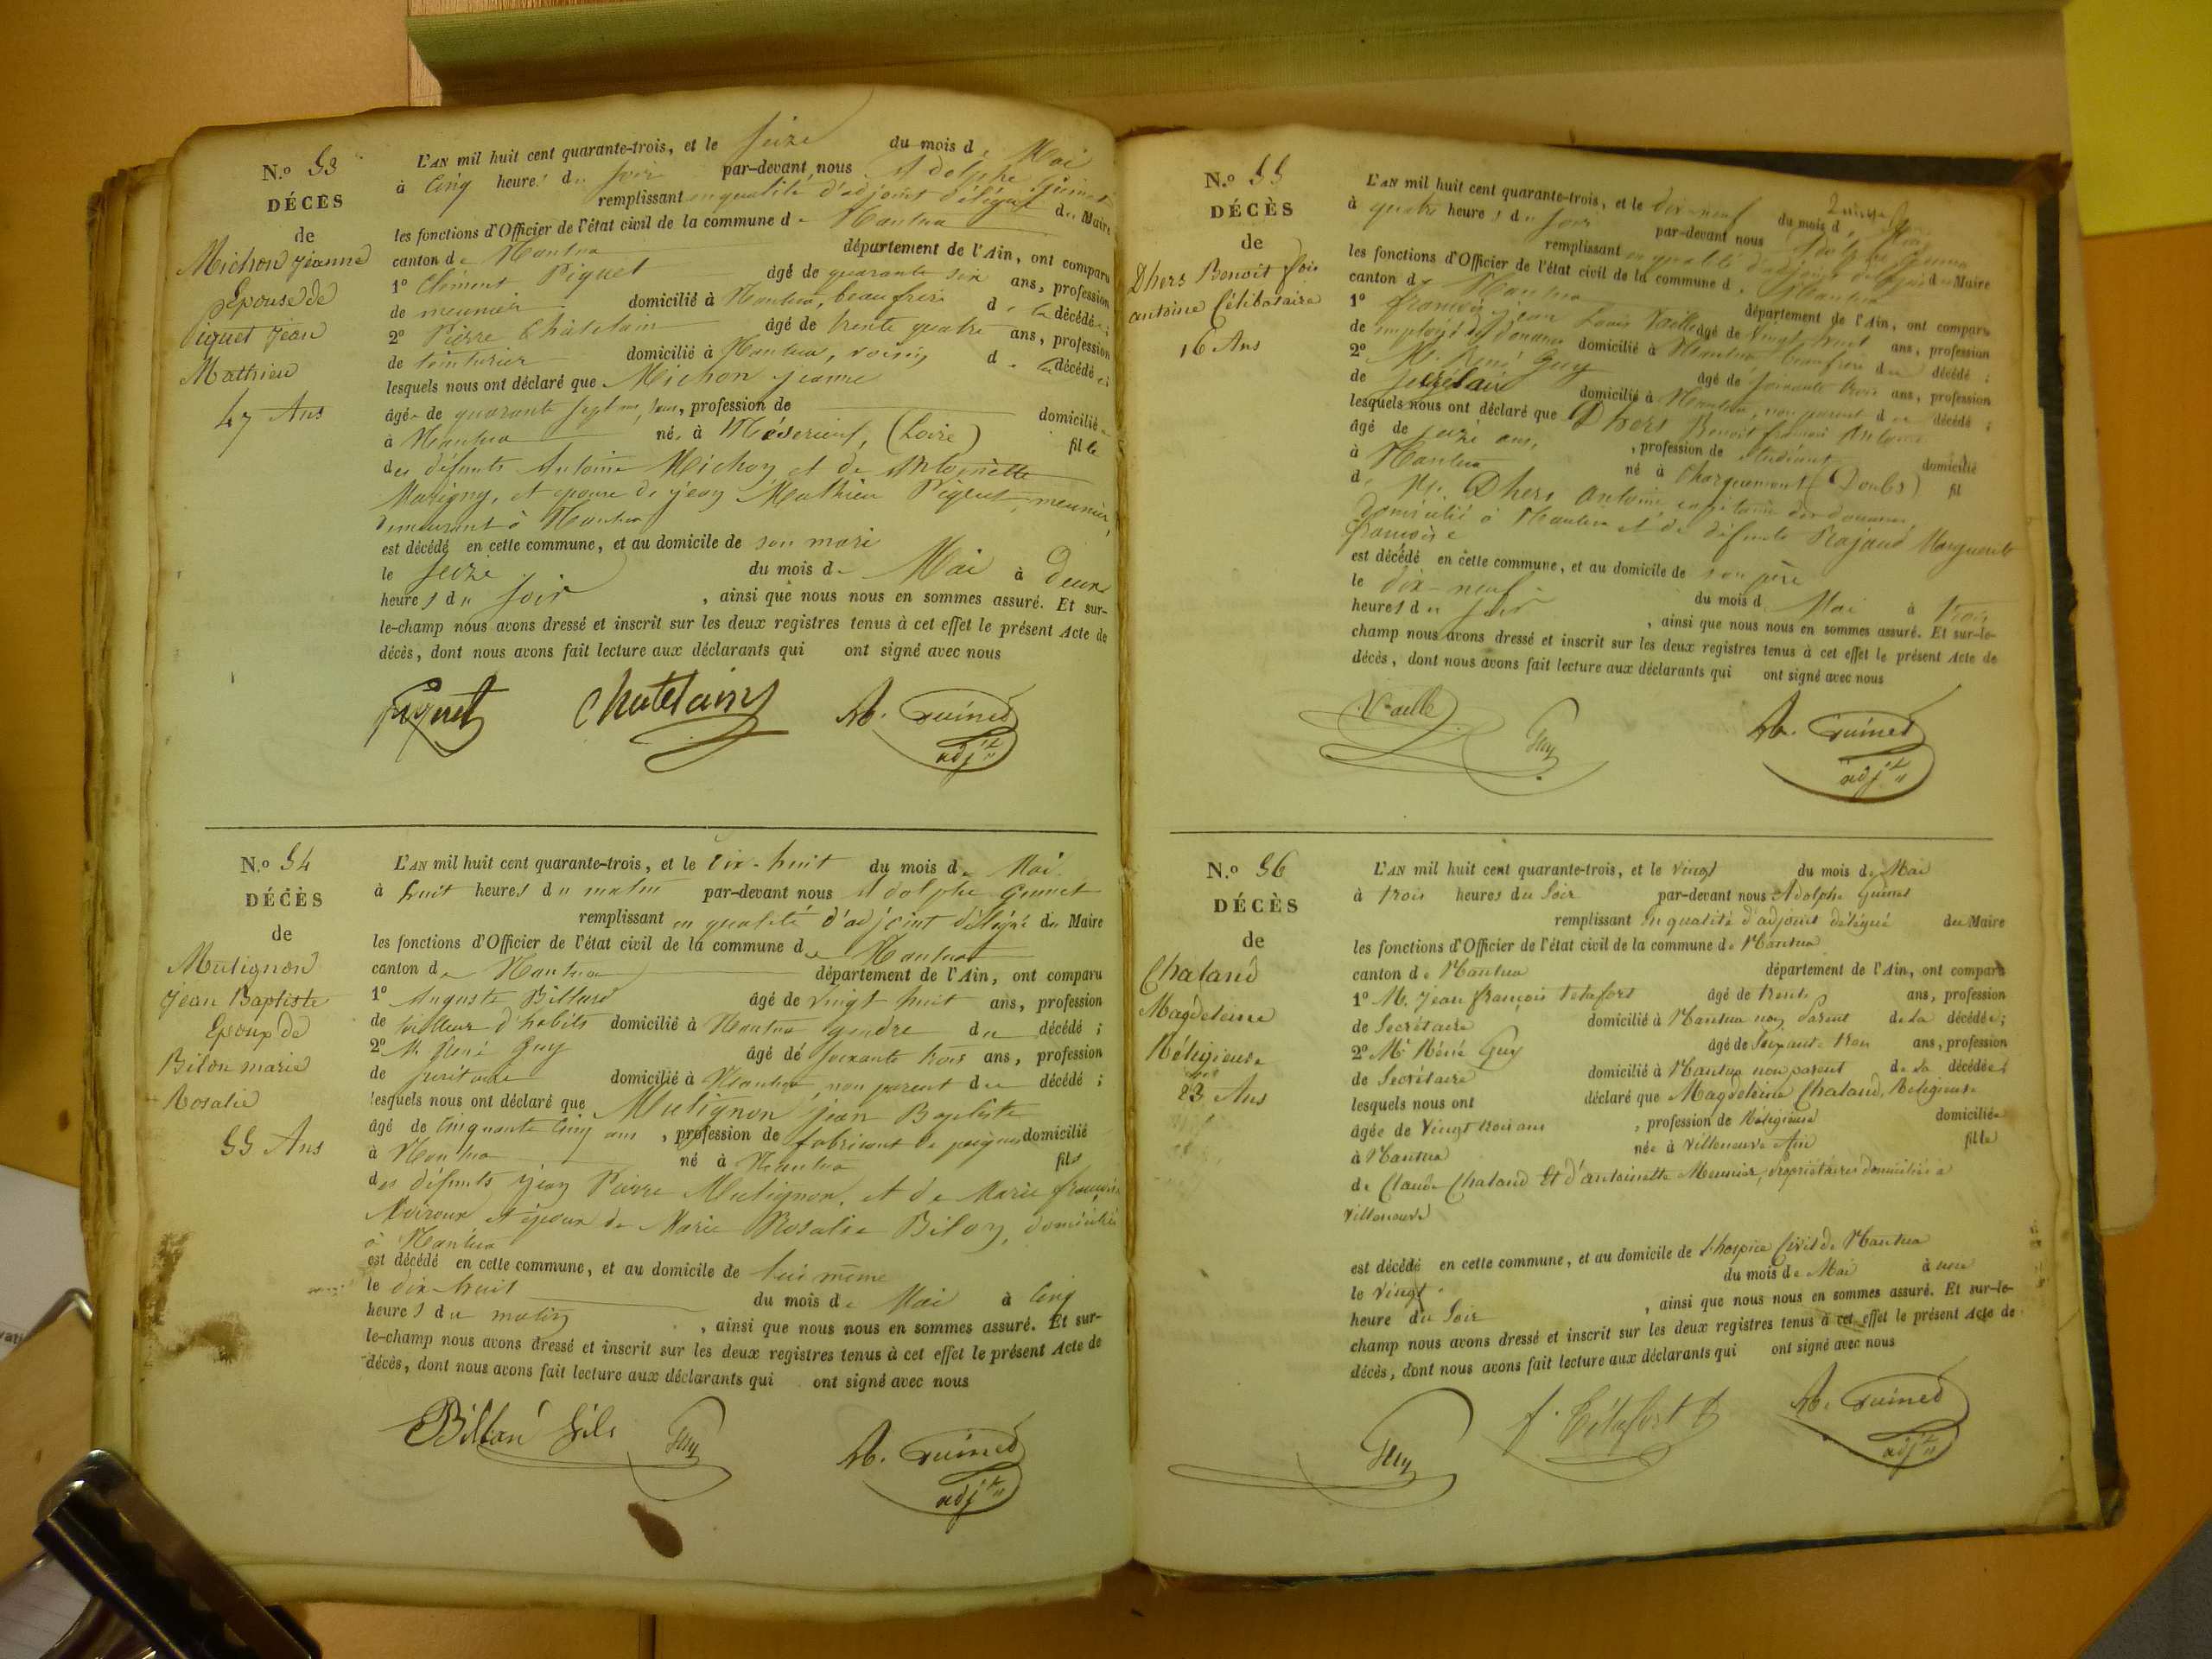 N.º 53
DÉCÈS
de
Michon Jeanne
Epouse de
Piguet Jean
Mathieu
47 Ans
L'AN mil huit cent quarante-trois, et le Seize du mois de Mai
à Cinq heures du Soir par-devant nous Adolphe Guinet
remplissant en qualité d'adjoint délégué du Maire
les fonctions d'Officier de l'état civil de la commune de Nantua
canton de Nantua département de l'Ain, ont comparu
1º Clément Piguet âgé de quarante six ans, profession
de meunier domicilié à Nantua, beaufrère de la décédée;
2º Pierre Châtelain âgé de trente quatre ans, profession
de teinturier domicilié à Nantua, voisin de la décédée;
lesquels nous ont déclaré que Michon Jeanne
âgée de quarante sept ans, profession de domiciliée
à Nantua née à (Loire) fille
des défunts Antoine Michon et de Antoinette
Marigny, et epouse de Jean Mathieu Piguet, meunier,
demeurant à Nantua
est décédé en cette commune, et au domicile de son mari
le Seize du mois de Mai à Deux
heures du Soir, ainsi que nous nous en sommes assuré. Et sur-
le-champ nous avons dressé et inscrit sur les deux registres tenus à cet effet le présent Acte de
décès, dont nous avons fait lecture aux déclarants qui ont signé avec nous
Piguet Chatelain Ad. Guinet
adjt
N.º 54
DÉCÈS
de
Mutignon
Jean Baptiste
Epoux de
Bilon marie
Rosalie
55 Ans
L'AN mil huit cent quarante-trois, et le Dix-huit du mois de Mai
à huit heures du matin par-devant nous Adolphe Guinet
remplissant en qualité d'adjoint délégué du Maire
les fonctions d'Officier de l'état civil de la commune de Nantua
canton de Nantua département de l'Ain, ont comparu
1º Auguste Billand âgé de vingt huit ans, profession
de tailleur d'habits domicilié à Nantua gendre du décédé;
2º Mr René Guy âgé de soixante trois ans, profession
de domicilié à Nantua, non parent du décédé;
lesquels nous ont déclaré que Mutignon Jean Baptiste
âgé de Cinquante Cinq ans, profession de fabricant de peignes domicilié
à Nantua né à Nantua fils
des défunts Jean Pierre Mutignon, et de Marie françoise
et époux de Marie Rosalie Bilon, domiciliée
à Nantua
est décédé en cette commune, et au domicile de lui même
le dix-huit du mois de Mai à Cinq
heures du matin, ainsi que nous nous en sommes assuré. Et sur-
le-champ nous avons dressé et inscrit sur les deux registres tenus à cet effet le présent Acte de
décès, dont nous avons fait lecture aux déclarants qui ont signé avec nous
Billan fils Guy Ad. Guinet
adjt
N.º 55
DÉCÈS
de
Dhers Benoit fois
antoine Célibataire
16 Ans
L'AN mil huit cent quarante-trois, et le dix-neuf du mois de Mai
à quatre heures du Soir par-devant nous Adolphe Guinet
remplissant en qualité d'adjoint délégué du Maire
les fonctions d'Officier de l'état civil de la commune de Nantua
canton de Nantua département de l'Ain, ont comparu
1º françois jean Louis Vaille âgé de vingt huit ans, profession
de employé des douanes domicilié à Nantua, beaufrère du décédé;
2º Mr René Guy âgé de soixante trois ans, profession
de Secrétaire domicilié à Nantua, non parent du décédé;
lesquels nous ont déclaré que Dhers Benoit françois Antoine
âgé de seize ans, profession de étudiant domicilié
à Nantua né à Charquemont (Doubs) fil
de Mr Dhers Antoine capitaine des douanes,
domicilié à Nantua et de défunte Marguerite
françoise
est décédé en cette commune, et au domicile de son père
le dix-neuf du mois de Mai à trois
heures du Soir, ainsi que nous nous en sommes assuré. Et sur-le-
champ nous avons dressé et inscrit sur les deux registres tenus à cet effet le présent Acte de
décès, dont nous avons fait lecture aux déclarants qui ont signé avec nous
Vaille Guy Ad. Guinet
adjt
N.º 56
DÉCÈS
de
Chaland
Magdeleine
Réligieuse
23 Ans
L'AN mil huit cent quarante-trois, et le Vingt du mois de Mai
à trois heures du Soir par-devant nous Adolphe Guinet
remplissant En qualité d'adjoint délégué du Maire
les fonctions d'Officier de l'état civil de la commune de Nantua
canton de Nantua département de l'Ain, ont comparu
1º M. Jean françois Tétafort âgé de trente ans, profession
de Secrétaire domicilié à Nantua non Parent de la décédée;
2º Mr Réné Guy âgé de Soixante trois ans, profession
de Secrétaire domicilié à Nantua non parent de la décédée;
lesquels nous ont déclaré que Magdeleine Chaland, Religieuse
âgée de Vingt trois ans, profession de Réligieuse domiciliée
à Nantua née à Villeneuve Ain fille
de Claude Chaland Et d'antoinette Meunier, propriétaires domiciliés à
Villeneuve
est décédé en cette commune, et au domicile de L'hospice Civil de Nantua
le Vingt du mois de Mai à une
heure du Soir, ainsi que nous nous en sommes assuré. Et sur-le-
champ nous avons dressé et inscrit sur les deux registres tenus à cet effet le présent Acte de
décès, dont nous avons fait lecture aux déclarants qui ont signé avec nous
Guy f. Tétafort Ad. Guinet
adjt